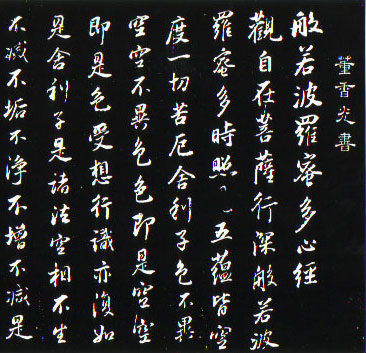 董香光書
般若波羅蜜多心經
觀自在菩薩行深般若波
羅蜜多時照五蘊皆空
度一切苦厄舍利子色不異
空空不異色色即是空空
即是色受想行識亦復如
是舍利子是諸法空相不生
不滅不垢不淨不增不減是